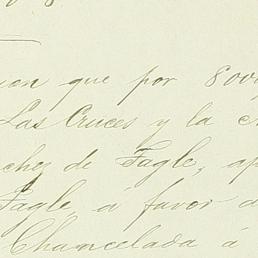 que por 800
Las Cruces y la
chez de Tagle, ap
Tagle, á favor d
Chancelada á